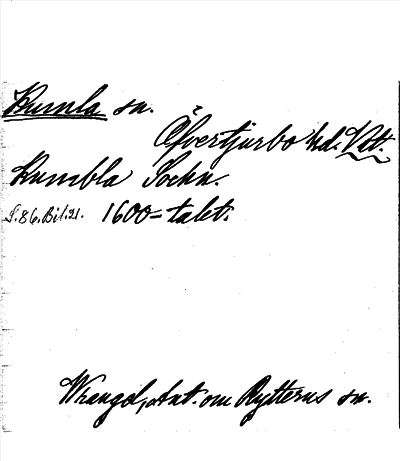 Kumla sn.
Öfvertjurbo hd. Vtl.
Kumbla Sochn.
S. 86. Bil. 21. 1600-talet.
Wrangel, Ant. om Rytterns sn.